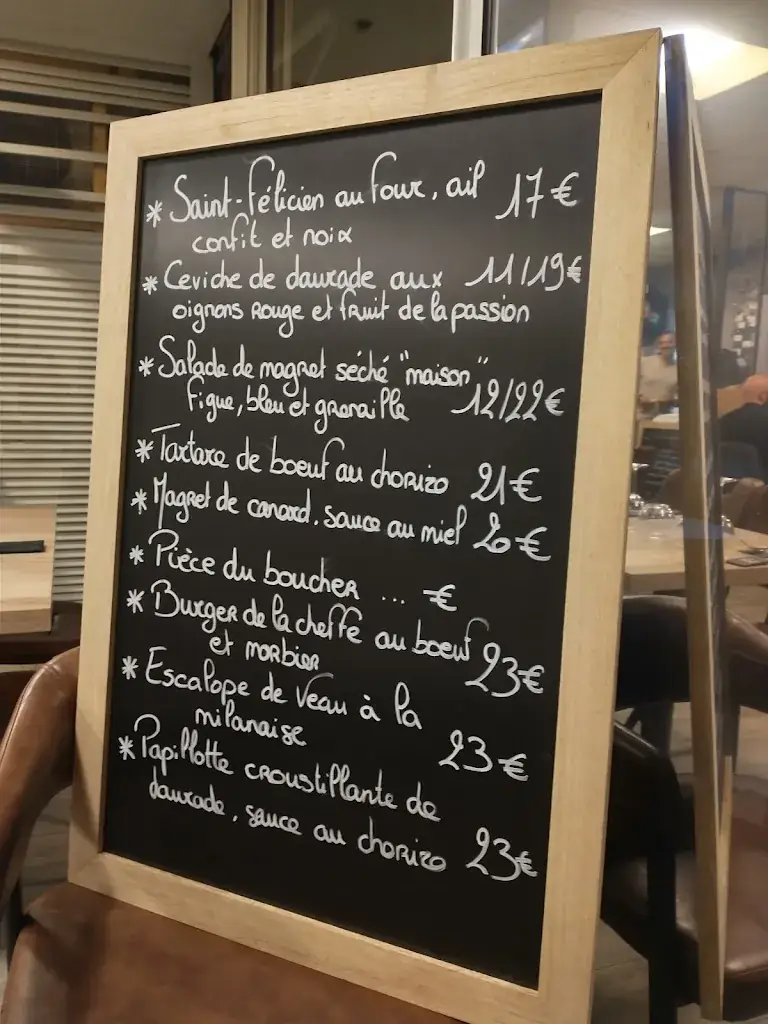 * Saint-Félicien au four, ail 17€
confit et noix
* Ceviche de daurade aux 11/19€
oignons rouge et fruit de la passion
* Salade de magret séché "maison"
figue, bleu et grenaille 12/22€
* Tartare de boeuf au chorizo 21€
* Magret de canard, sauce au miel 20€
* Pièce du boucher ... €
* Burger de la cheffe au boeuf
et morbier 23€
* Escalope de veau à la
milanaise 23€
* Papillotte croustillante de
daurade, sauce au chorizo 23€